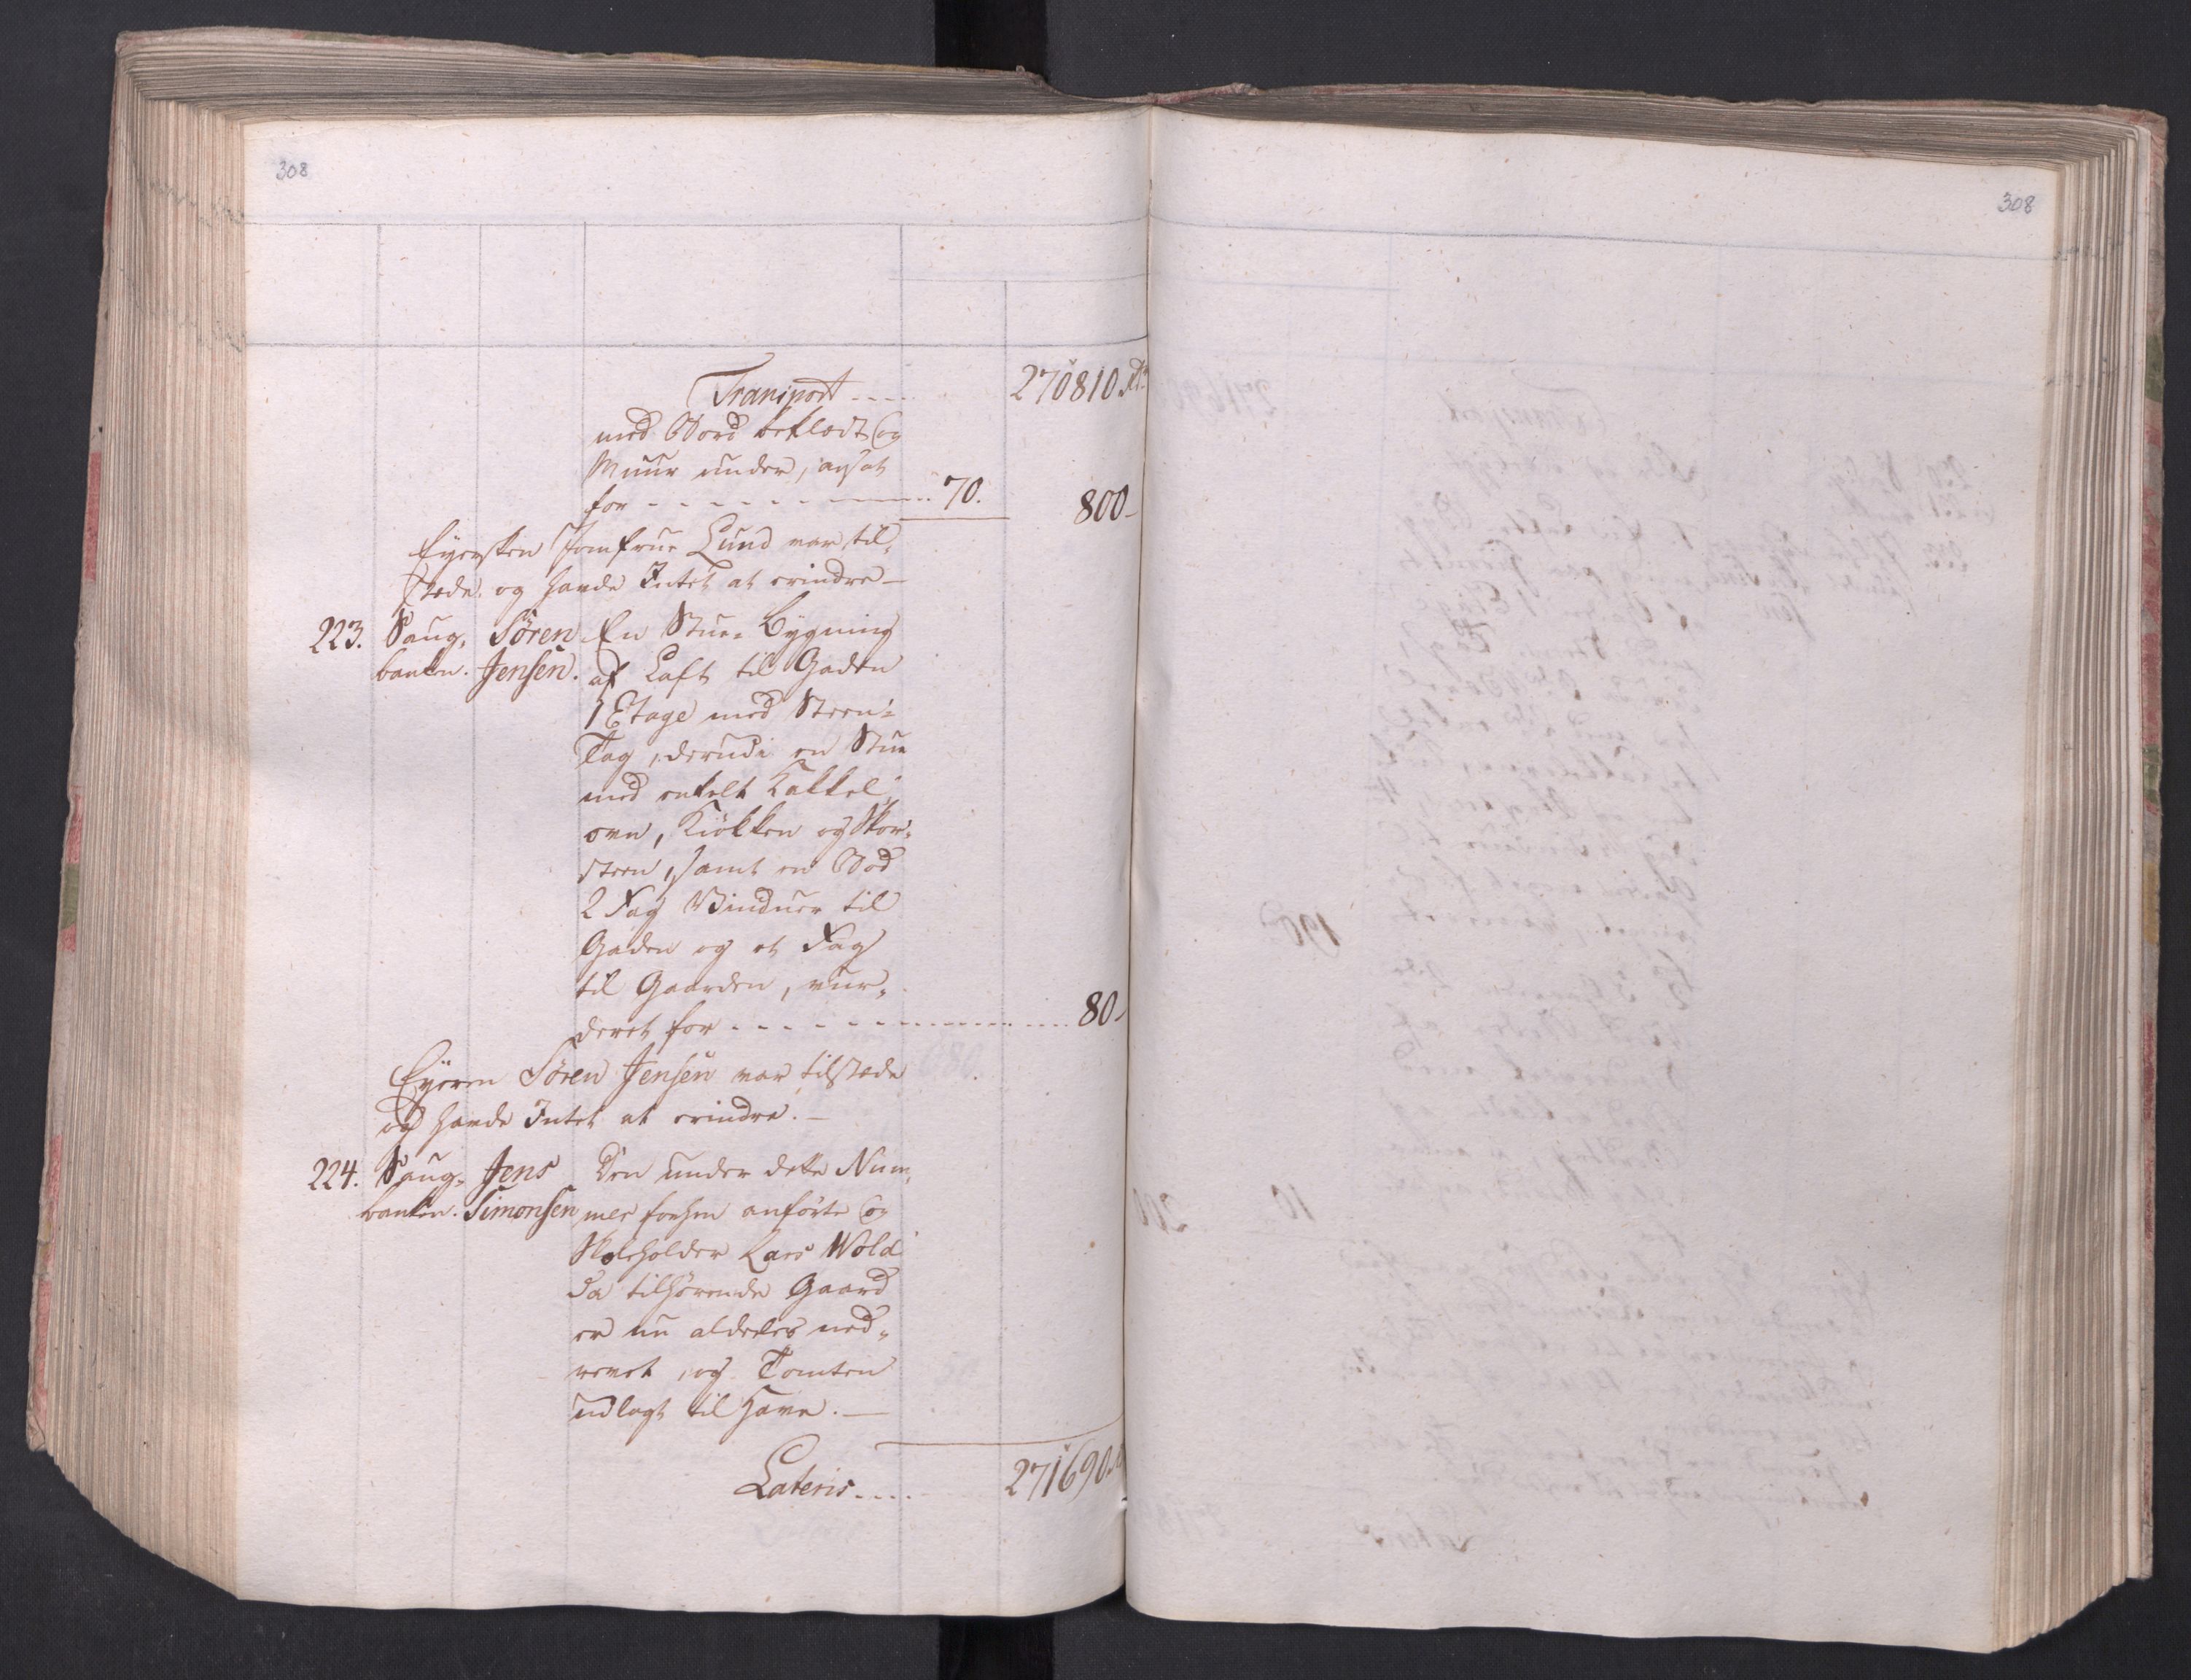 308
308
Transport ---- 270810 Rd.
med Bord beklædt og
Muur under, ansat
for - - - - - - - - - 70. 800-
Eyersken Jomfrue Lund var til,
stæde og havde Intet at erindre -
223. Saug, Sören En Stue-Bygning
banken. Jensen. af Laft til Gaden
1 Etage med Steen-
Tag, derudi en Stue
med enkelt Kakkel,
ovn, Kiökken og Skor-
steen, samt en Bod
2 Fag Vinduer til
Gaden og et Fag
til Gaarden, vur,
deret for - - - - - - - - - 80-
Eyeren Sören Jensen var tilstæde
og havde Intet at erindre. -
224. Saug, Jens Den under dette Num,
banken. Simonsen mer forhen anförte og
Skoleholder Lars Wold
da tilhörende Gaard
er nu aldeles ned,
revet, og Tomten
udlagt til Have. -
Lateris .... 271690